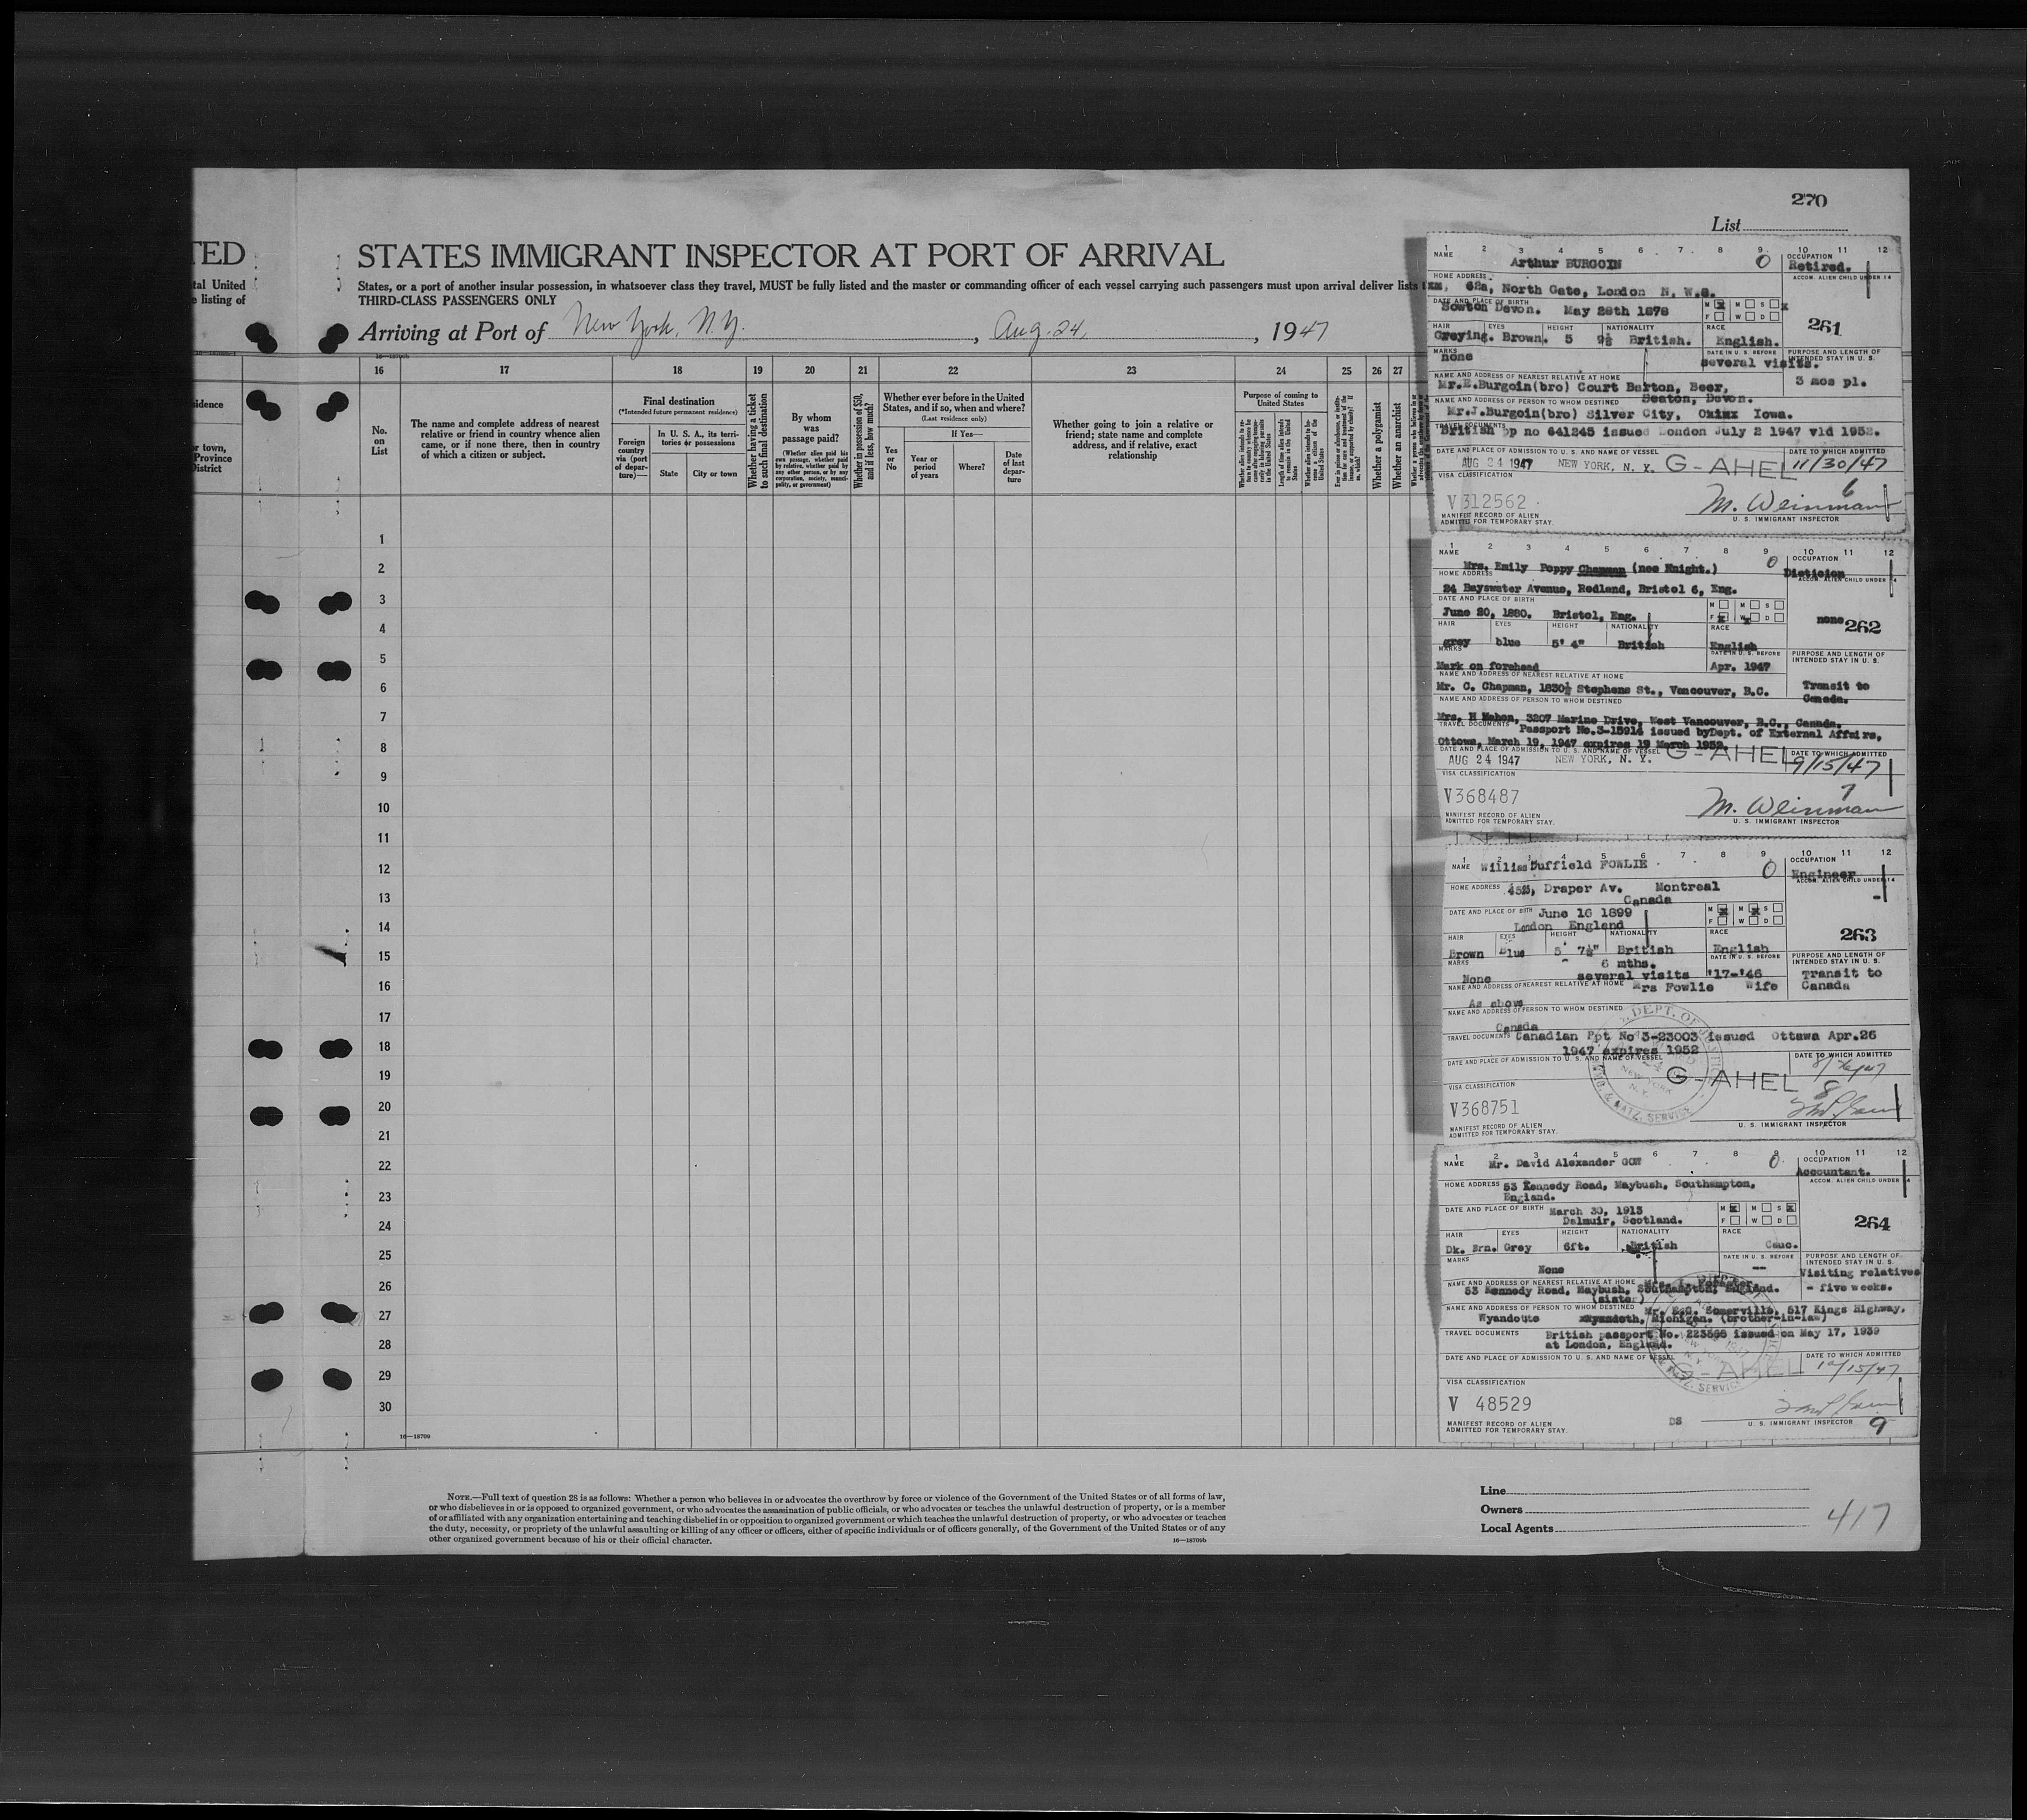 270
List
TED
tal United
e listing of
STATES IMMIGRANT INSPECTOR AT PORT OF ARRIVAL
States, or a port of another insular possession, in whatsoever class they travel, MUST be fully listed and the master or commanding officer of each vessel carrying such passengers must upon arrival deliver lists
THIRD-CLASS PASSENGERS ONLY
Arriving at Port of New York, N.Y. , Aug. 24, , 1947
16 17 18 19 20 21 22 23 24 25 26 27
idence
r town,
Province
District
No.
on
List
The name and complete address of nearest
relative or friend in country whence alien
came, or if none there, then in country
of which a citizen or subject.
Final destination
(*Intended future permanent residence)
Foreign
country
via (port
of depar-
ture)—
In U. S. A., its terri-
tories or possessions
State
City or town
Whether having a ticket
to such final destination
By whom
was
passage paid?
(Whether alien paid his
own passage, whether paid
by relative, whether paid by
any other person, or by any
corporation, society, munici-
pality, or government)
Whether in possession of $50,
and if less, how much?
Whether ever before in the United
States, and if so, when and where?
(Last residence only)
If Yes—
Yes
or
No
Year or
period
of years
Where?
Date
of last
depar-
ture
Whether going to join a relative or
friend; state name and complete
address, and if relative, exact
relationship
Purpose of coming to
United States
Whether a polygamist
Whether an anarchist
1
2
3
4
5
6
7
8
9
10
11
12
13
14
15
16
17
18
19
20
21
22
23
24
25
26
27
28
29
30
16—18709
1 2 3 4 5 6 7 8 9 10 11 12
NAME Arthur BURGOIN 0
OCCUPATION Retired.
HOME ADDRESS
ACCOM. ALIEN CHILD UNDER 14
62a, North Gate, London N. W.8.
DATE AND PLACE OF BIRTH
Sowton Devon. May 28th 1878
M M S
F W D
261
HAIR EYES HEIGHT NATIONALITY RACE
Greying. Brown. 5 9½ British. English.
MARKS none
DATE IN U. S. BEFORE several visits.
PURPOSE AND LENGTH OF
INTENDED STAY IN U. S.
3 mos pl.
NAME AND ADDRESS OF NEAREST RELATIVE AT HOME
Mr.E.Burgoin(bro) Court Barton, Beer,
Seaton, Devon.
NAME AND ADDRESS OF PERSON TO WHOM DESTINED
Mr.J.Burgoin(bro) Silver City, Iowa.
TRAVEL DOCUMENTS
British pp no 641245 issued London July 2 1947 vld 1952.
DATE AND PLACE OF ADMISSION TO U. S. AND NAME OF VESSEL
DATE TO WHICH ADMITTED
AUG 24 1947 NEW YORK, N. Y. G-AHEL 11/30/47
VISA CLASSIFICATION
V312562
6
M. Weinman
MANIFEST RECORD OF ALIEN
ADMITTED FOR TEMPORARY STAY.
U. S. IMMIGRANT INSPECTOR
1 2 3 4 5 6 7 8 9 10 11 12
NAME Mrs. Emily Poppy Chapman (nee Knight.) 0
OCCUPATION Dietician
HOME ADDRESS
ACCOM. ALIEN CHILD UNDER 14
24 Bayswater Avenue, Redland, Bristol 6, Eng.
DATE AND PLACE OF BIRTH
June 20, 1880. Bristol, Eng.
M M S
F W D
none 262
HAIR EYES HEIGHT NATIONALITY RACE
grey blue 5' 4" British English
MARKS
Mark on forehead
DATE IN U. S. BEFORE
Apr. 1947
PURPOSE AND LENGTH OF
INTENDED STAY IN U. S.
Transit to
Canada.
NAME AND ADDRESS OF NEAREST RELATIVE AT HOME
Mr. C. Chapman, 1830½ Stephens St., Vancouver, B.C.
NAME AND ADDRESS OF PERSON TO WHOM DESTINED
Mrs. H Mahon, 3207 Marine Drive, West Vancouver, B.C., Canada.
TRAVEL DOCUMENTS
Passport No.3-15914 issued byDept. of External Affairs,
Ottowa, March 19, 1947 expires 19 March 1952.
DATE AND PLACE OF ADMISSION TO U. S. AND NAME OF VESSEL
DATE TO WHICH ADMITTED
AUG 24 1947 NEW YORK, N. Y. G-AHEL 9/15/47
VISA CLASSIFICATION
V368487
7
M. Weinman
MANIFEST RECORD OF ALIEN
ADMITTED FOR TEMPORARY STAY.
U. S. IMMIGRANT INSPECTOR
1 2 3 4 5 6 7 8 9 10 11 12
NAME Duffield FOWLIE 0
OCCUPATION Engineer
HOME ADDRESS Draper Av. Montreal
Canada
ACCOM. ALIEN CHILD UNDER 14
-
DATE AND PLACE OF BIRTH June 16 1899
London England
M M S
F W D
263
HAIR EYES HEIGHT NATIONALITY RACE
Brown Blue 5' 7½" British English
MARKS None
6 mths.
several visits '17-'46
DATE IN U. S. BEFORE
PURPOSE AND LENGTH OF
INTENDED STAY IN U. S.
Transit to
Canada
NAME AND ADDRESS OF NEAREST RELATIVE AT HOME Mrs Fowlie Wife
As above
NAME AND ADDRESS OF PERSON TO WHOM DESTINED
Canada
TRAVEL DOCUMENTS Canadian Ppt No 3-23003 issued Ottawa Apr.26
1947 expires 1952
DATE AND PLACE OF ADMISSION TO U. S. AND NAME OF VESSEL
DATE TO WHICH ADMITTED
G-AHEL
8
VISA CLASSIFICATION
V368751
MANIFEST RECORD OF ALIEN
ADMITTED FOR TEMPORARY STAY.
U. S. IMMIGRANT INSPECTOR
1 2 3 4 5 6 7 8 9 10 11 12
NAME Mr. David Alexander GOW 0
OCCUPATION Accountant.
HOME ADDRESS 53 Kennedy Road, Maybush, Southampton,
England.
ACCOM. ALIEN CHILD UNDER 14
DATE AND PLACE OF BIRTH March 30, 1913
Dalmuir, Scotland.
M M S
F W D
264
HAIR EYES HEIGHT NATIONALITY RACE
Dk. Brn. Grey 6ft. British Cauc.
MARKS None
DATE IN U. S. BEFORE --
PURPOSE AND LENGTH OF
INTENDED STAY IN U. S.
Visiting relatives
- five weeks.
NAME AND ADDRESS OF NEAREST RELATIVE AT HOME
53 Kennedy Road, Maybush, Southampton, England.
(sister)
NAME AND ADDRESS OF PERSON TO WHOM DESTINED Mr. E.G. Somerville, 517 Kings Highway,
Wyandotte Michigan. (brother-in-law)
TRAVEL DOCUMENTS British passport No. issued on May 17, 1939
at London, England.
DATE AND PLACE OF ADMISSION TO U. S. AND NAME OF VESSEL
DATE TO WHICH ADMITTED
G-AHEL 10/15/47
VISA CLASSIFICATION
V 48529
DS
MANIFEST RECORD OF ALIEN
ADMITTED FOR TEMPORARY STAY.
U. S. IMMIGRANT INSPECTOR 9
NOTE.—Full text of question 28 is as follows: Whether a person who believes in or advocates the overthrow by force or violence of the Government of the United States or of all forms of law,
or who disbelieves in or is opposed to organized government, or who advocates the assassination of public officials, or who advocates or teaches the unlawful destruction of property, or is a member
of or affiliated with any organization entertaining and teaching disbelief in or opposition to organized government or which teaches the unlawful destruction of property, or who advocates or teaches
the duty, necessity, or propriety of the unlawful assaulting or killing of any officer or officers, either of specific individuals or of officers generally, of the Government of the United States or of any
other organized government because of his or their official character.
16—18709b
Line
Owners
Local Agents
417